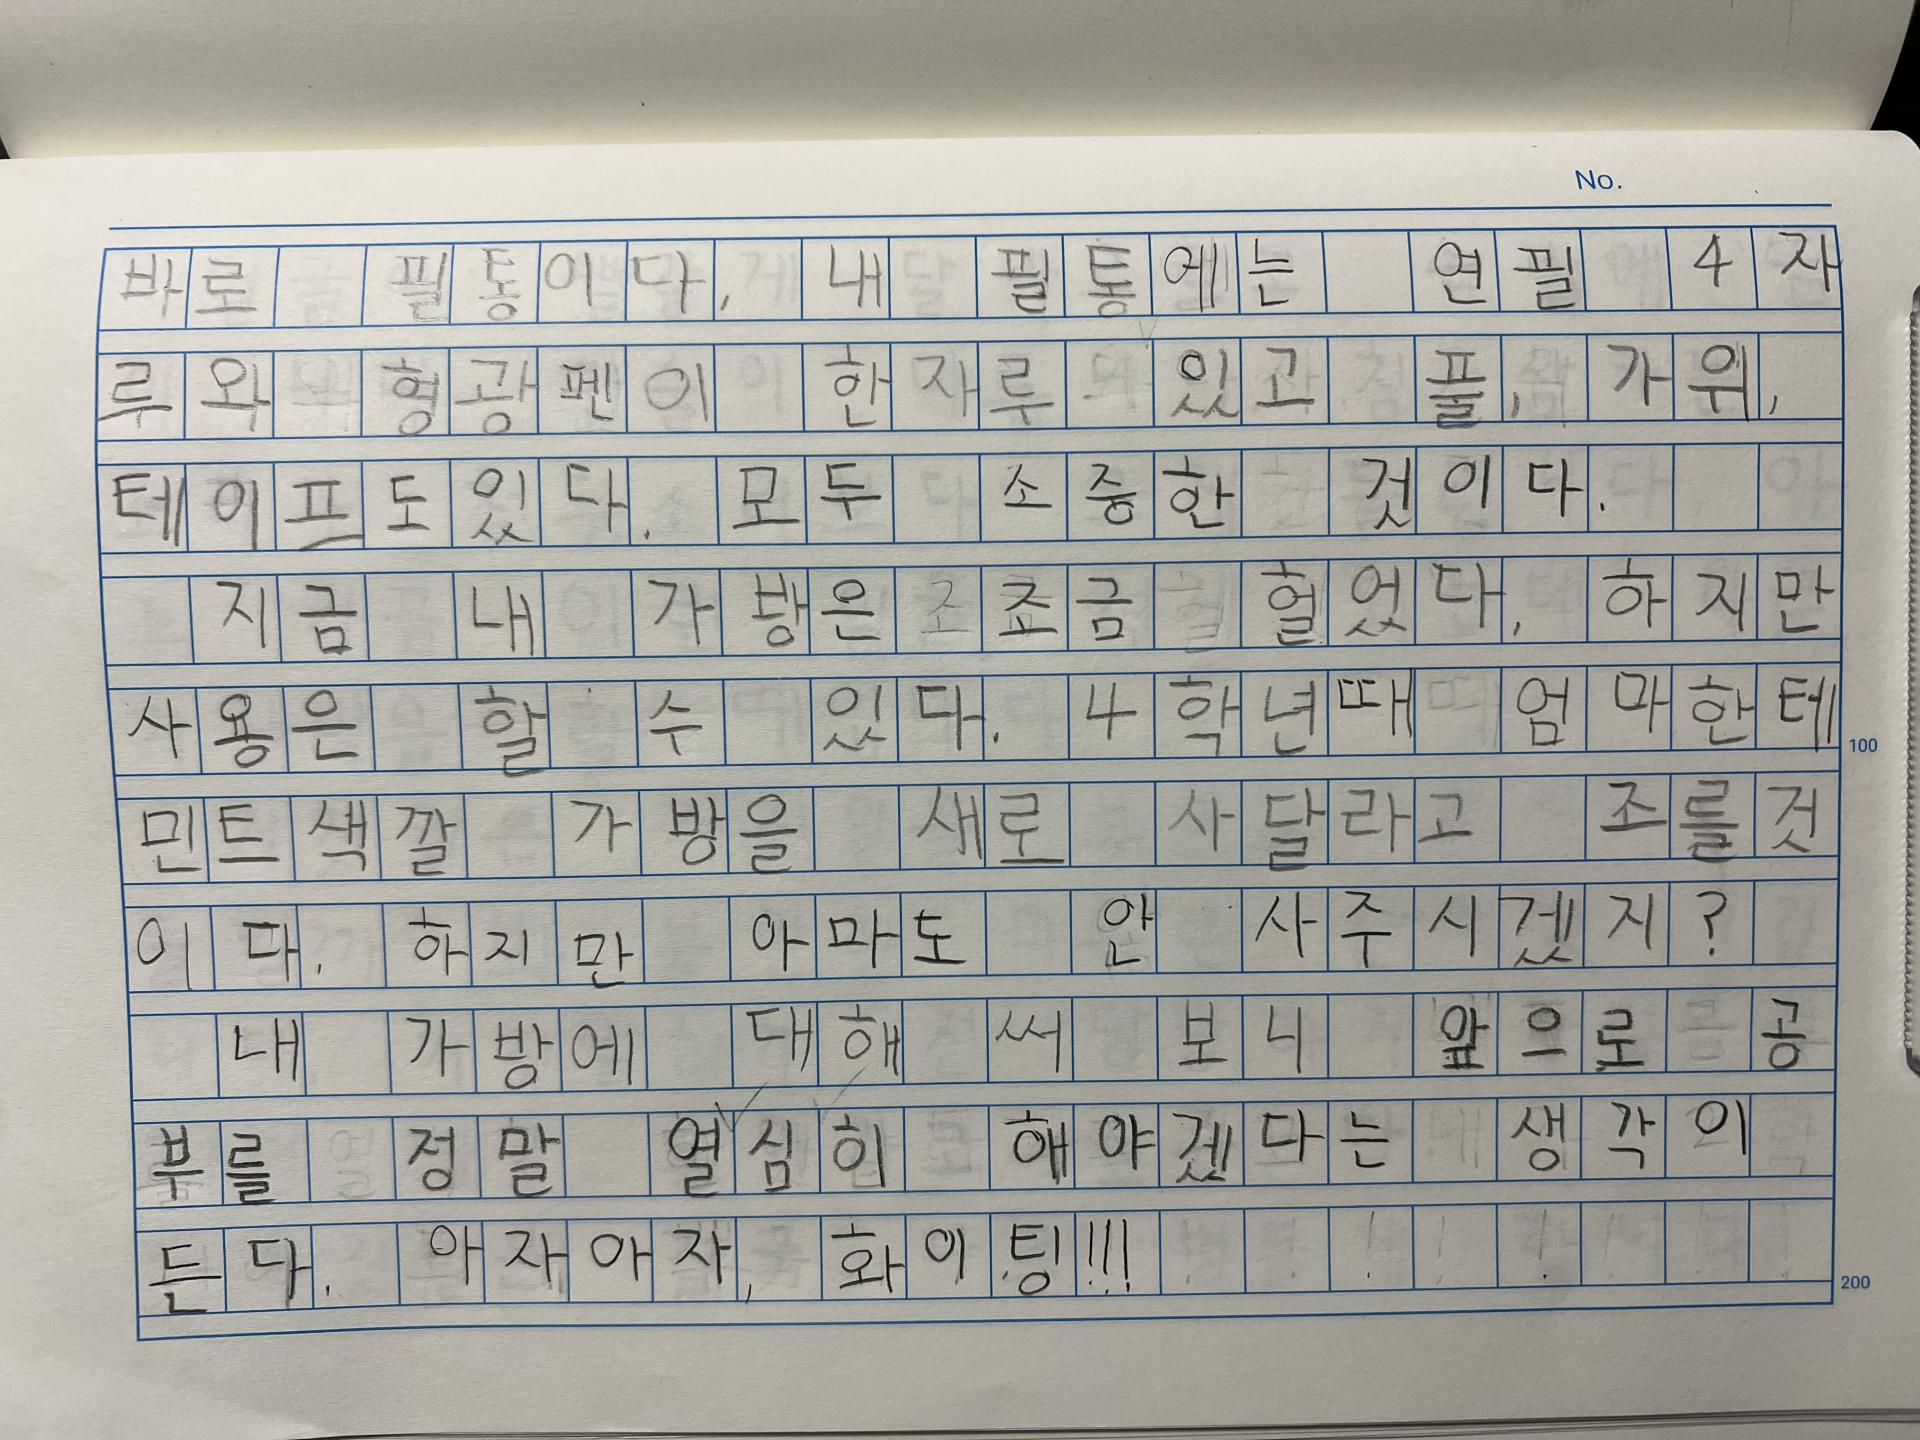 No.
바로 필통이다. 내 필통에는 연필 4자
루와 형광펜이 한자루 있고 풀, 가위,
테이프도있다. 모두 소중한 것이다.
지금 내 가방은 조금 헐었다. 하지만
사용은 할 수 있다. 4학년때 엄마한테
민트색깔 가방을 새로 사달라고 조를것
이다. 하지만 아마도 안 사주시겠지?
내 가방에 대해 써 보니 앞으로 공
부를 정말 열심히 해야겠다는 생각이
든다. 아자아자, 화이팅!!!
100
200